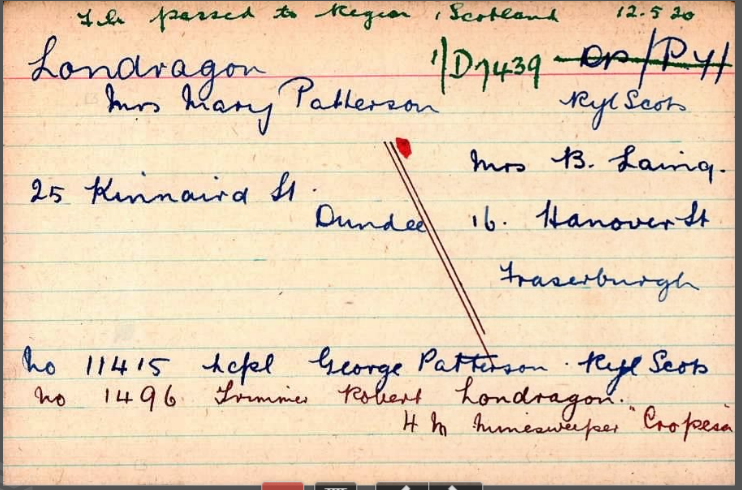 File passed to Region, Scotland 12.5.20
Londragon
1/D7439 DP/P41
Mrs Mary Patterson
Ryl Scots
Mrs B. Laing.
25 Kinnaird St.
Dundee
16. Hanover St
Fraserburgh
No 11415 Lcpl George Patterson. Ryl Scots
No 1496 Trimmer Robert Londragon.
H M Minesweeper "Cropesa